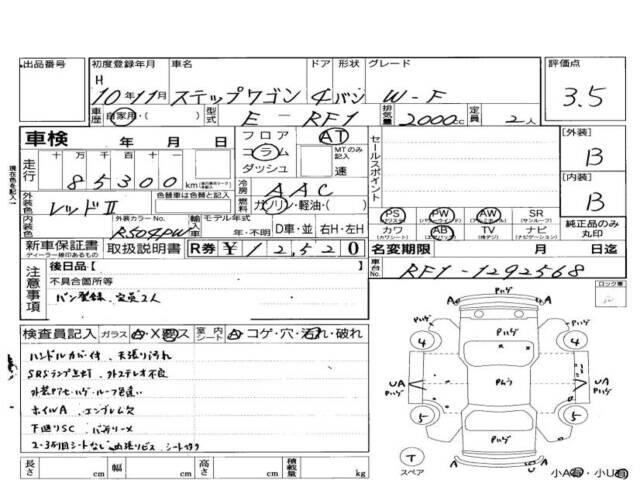 出品番号 初度登録年月 車名 ドア 形状 グレード 評価点
H 10年11月 ステップワゴン 4 バン W-F 3.5
車歴 自家用・( ) 型式 E-RF1 排気量 2000cc 定員 2人
車検 年 月 日 フロア AT
コラム MTのみ記入
ダッシュ 速
セールスポイント
[外装] B
走行 十万千百十一
85300 km
冷房 AAC
燃料 ガソリン・軽油・( )
[内装] B
外装色 レッドⅡ 色替車は色替と記入
内装色 外装カラーNo. R504PW 輸入車 モデル年式 年・不明 D車・並 右H・左H
PS PW AW SR
(パワステ) (パワーウインドウ) (アルミホイール) (サンルーフ)
カワ AB TV ナビ
(カワシート) (エアバック) (純テレビ) (ナビゲーション)
純正品のみ丸印
新車保証書 取扱説明書 R券 ¥12,520
ディーラー検印あるもの
名変期限 月 日迄
車台No. RF1-1292568
現在色を記入
注意事項 後日品 [
不具合箇所等
バン登録、定員2人
ロック車
検査員記入 ガラス A・X・ス 室内シート A・コゲ・穴・汚れ・破れ
ハンドルカバー付 天張り汚れ
SRSランプ点灯 外ステレオ不良
ホイルA エンブレム欠
下廻りSC バッテリー×
2・3列目シートなし
長さ cm 幅 cm 高さ cm 積載量 kg
Pハゲ
A A
Pハゲ
4 4
UA Pハゲ
Pムラ
UA Pハゲ
5 5
Pハゲ
T
スペア
A U
小A有・小U有